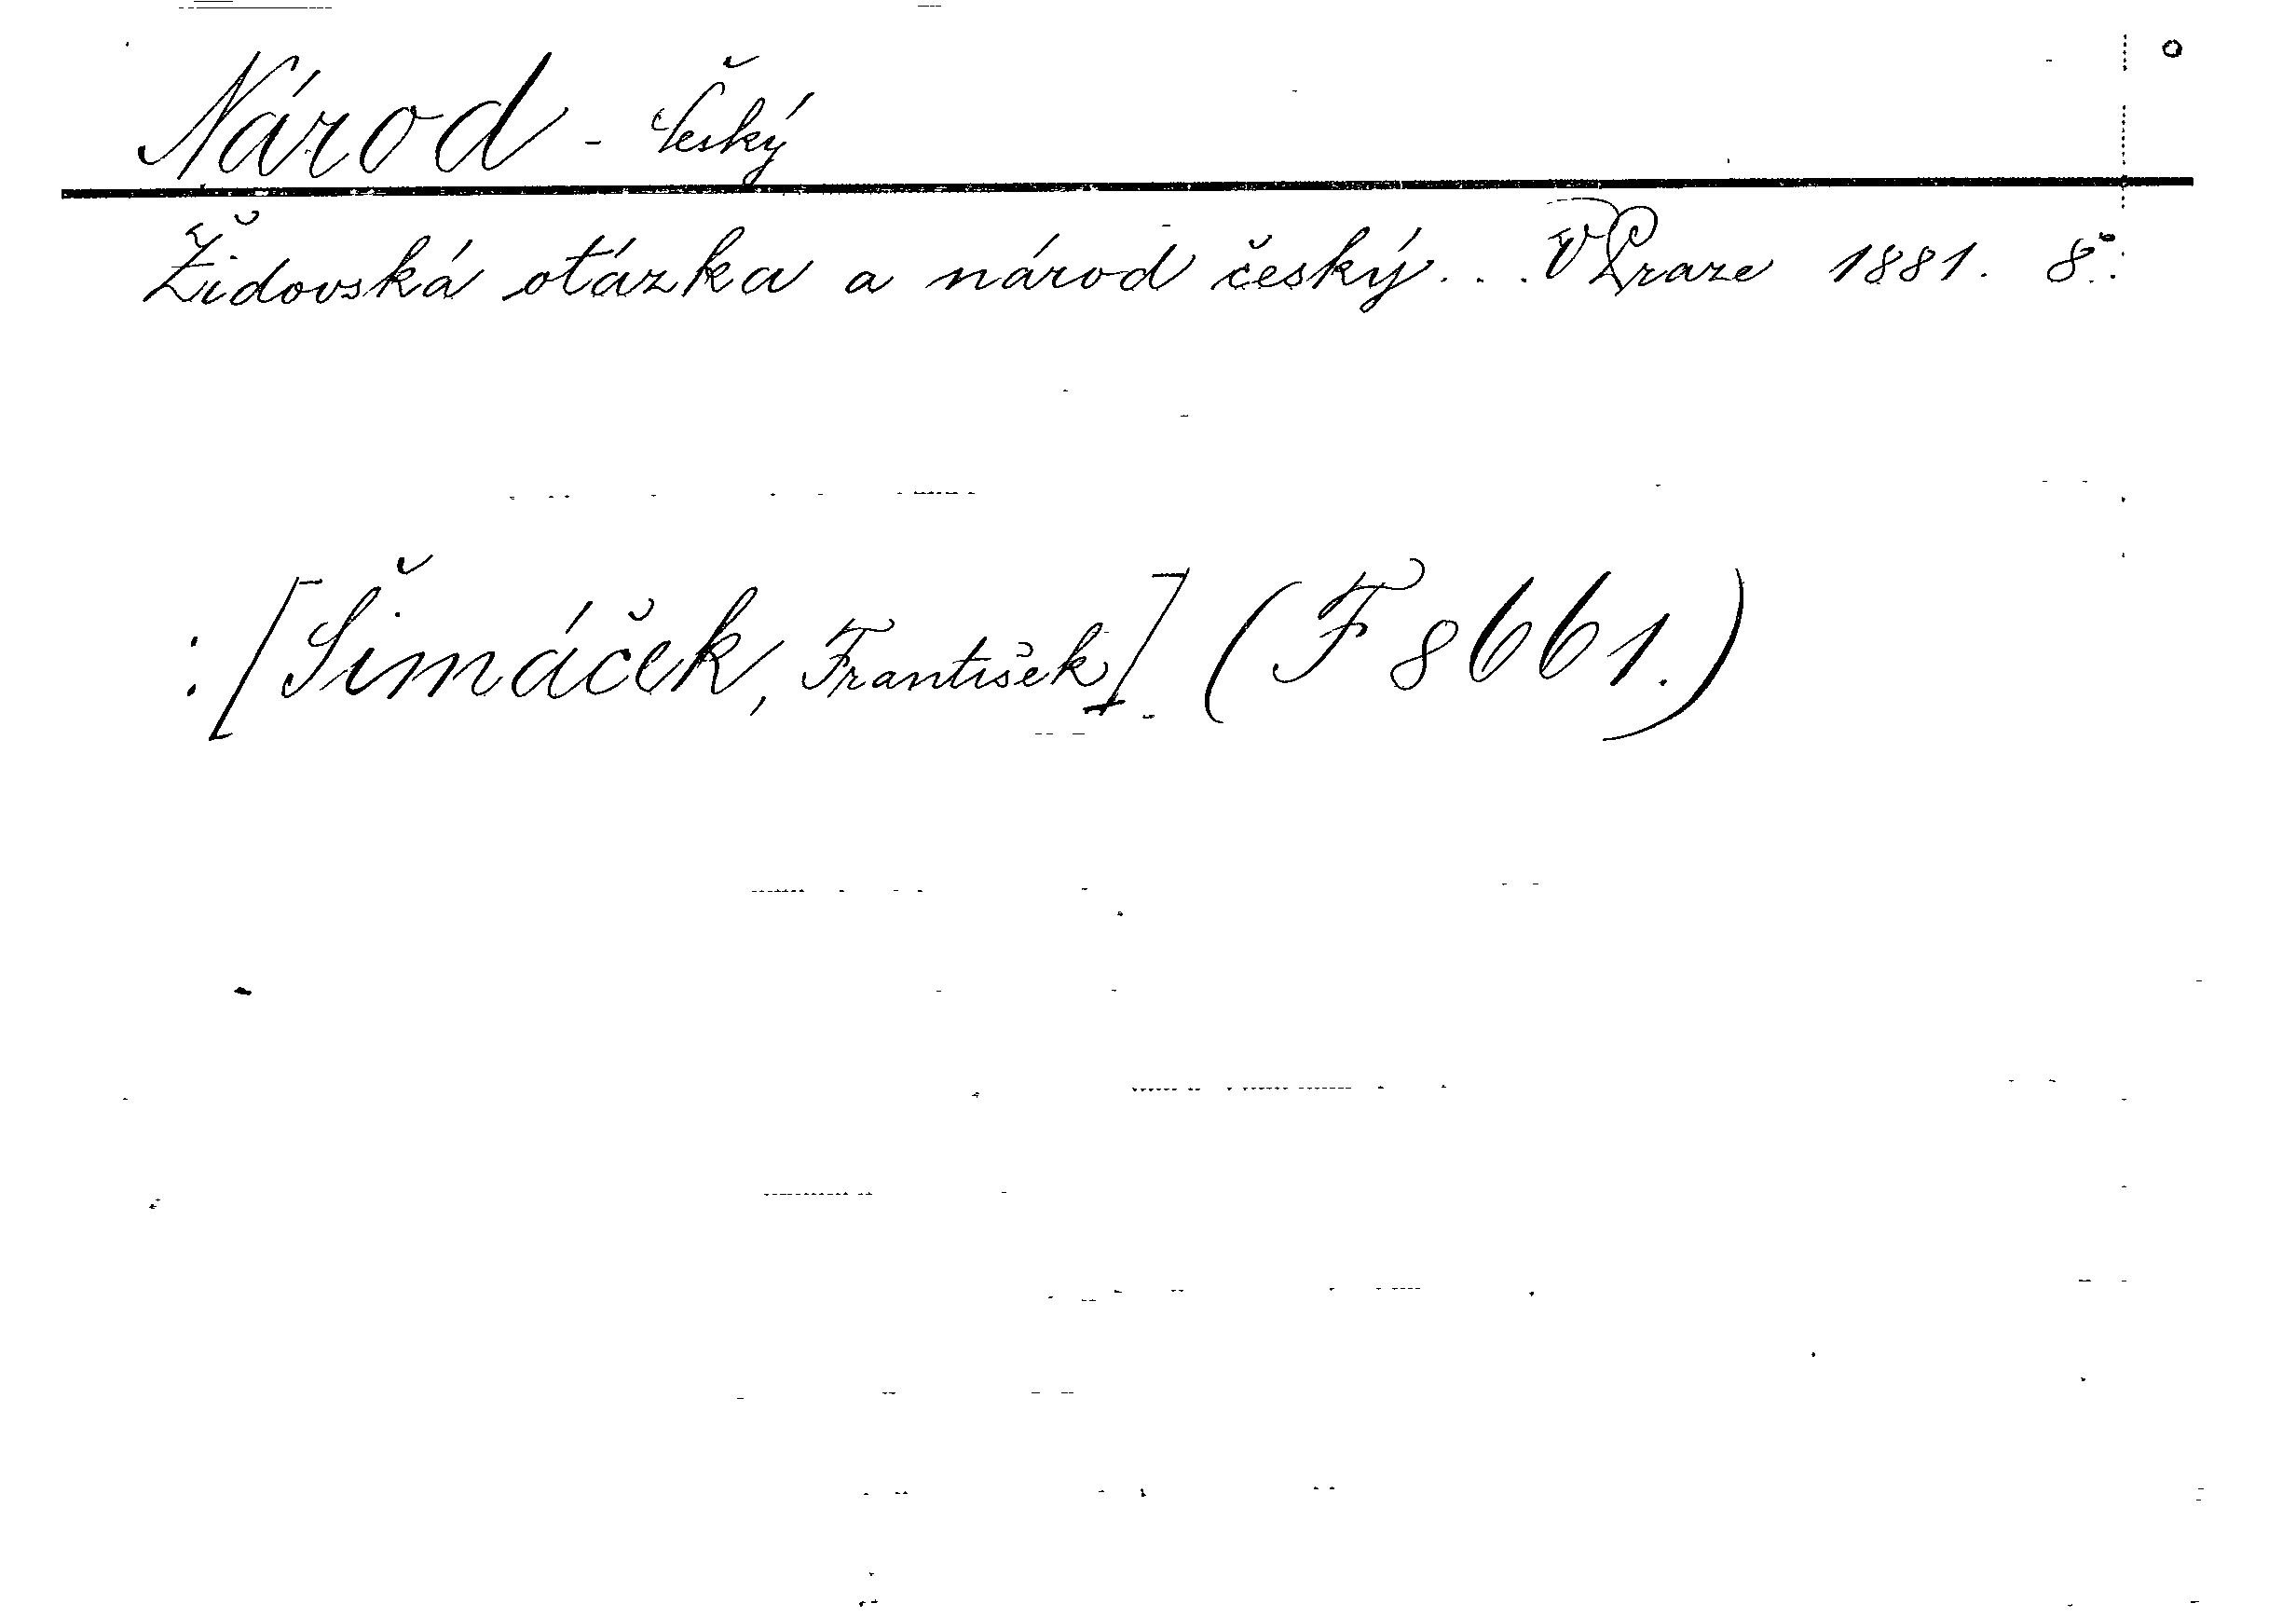 Národ - Český
Židovská otázka a národ český... V Praze 1881. 8°.
: [Šimáček, František]. (F 8661.)